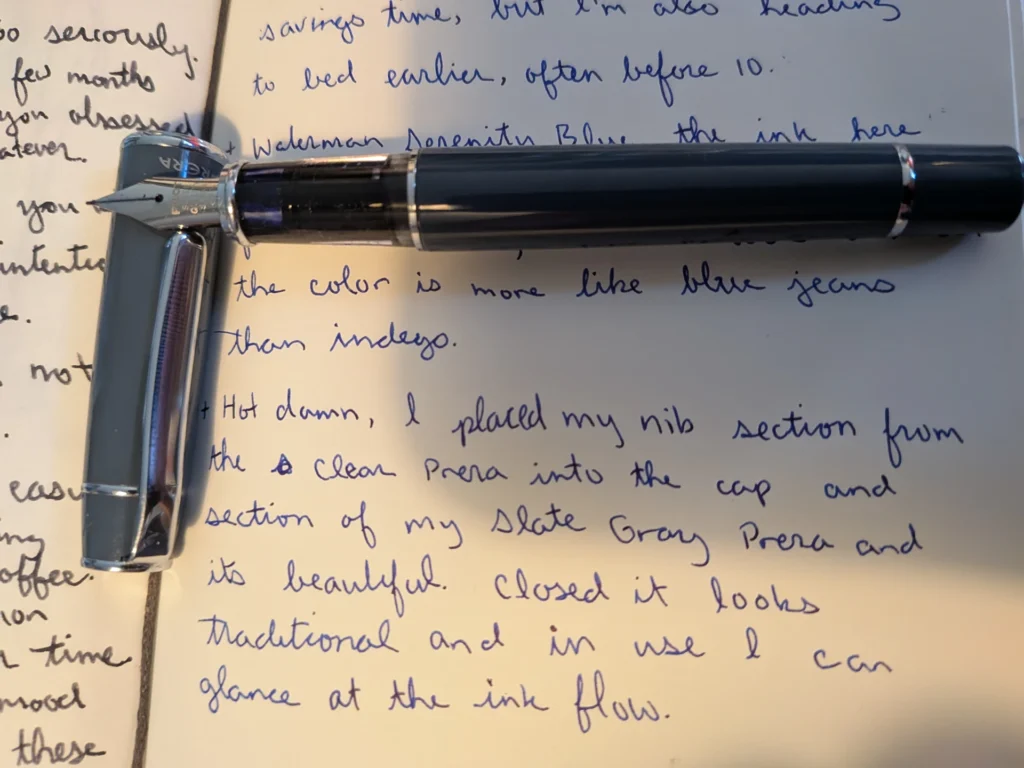 so seriously.
few months
you obsessed
atever.
you
intentio
e.
not
easy
ing
offee.
ion
time
mood
these
savings time, but I'm also heading
to bed earlier, often before 10.
+ Waterman Serenity Blue the ink here
the color is more like blue jeans
than indego.
+ Hot damn, I placed my nib section from
the clear Prera into the cap and
section of my Slate Gray Prera and
its beautiful. Closed it looks
traditional and in use I can
glance at the ink flow.